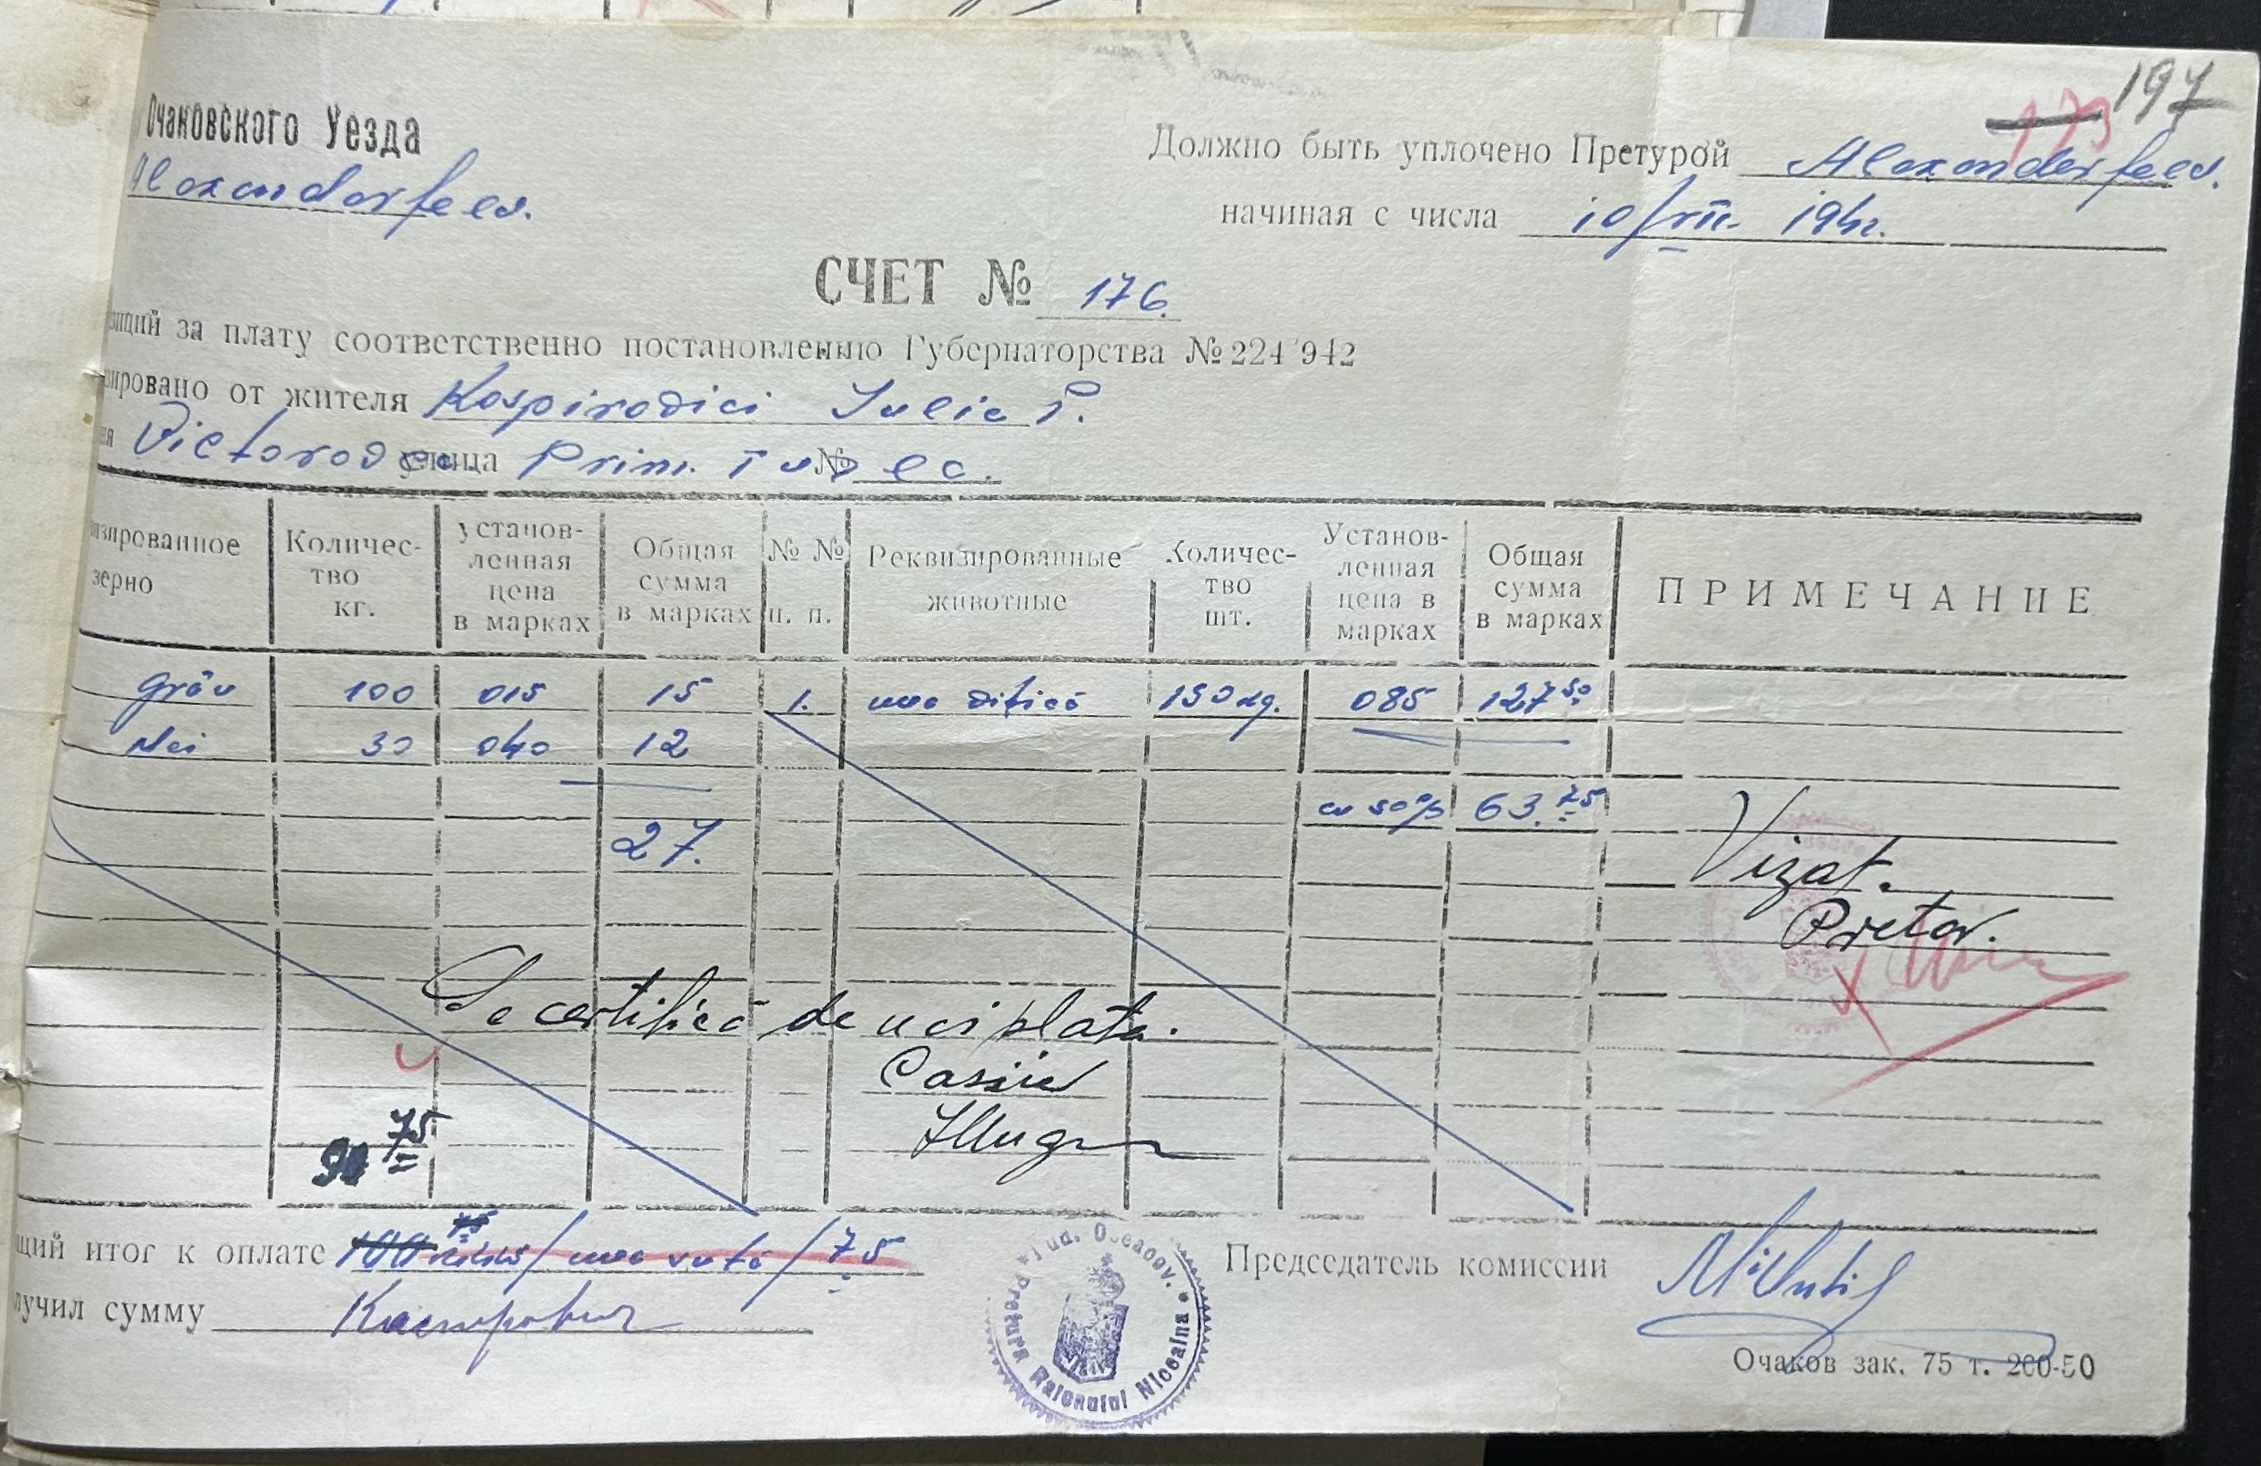 197
173
Очаковского Уезда
Alexanderfeld.
Должно быть уплочено Претурой Alexanderfeld.
начиная с числа 10/VII. 1942.
СЧЕТ № 176.
зиций за плату соответственно постановлению Губернаторства № 224 942
зировано от жителя Kospirodici Iulia P.
ия улица Prim. №
изированное зерно Количес-тво кг. установ-ленная цена в марках Общая сумма в марках №№ п. п. Реквизированные животные Количес-тво шт. Установ-ленная цена в марках Общая сумма в марках ПРИМЕЧАНИЕ
grâu 100 015 15 1. una 150 kg. 085 127 50
Mei 30 040 12
cu 50% 63.75
27.
Vizat.
Pretor.
Se certifică de noi plata.
Casier
90 75
щий итог к оплате 100 una sută / 75
лучил сумму
Jud. Oceacov. Pretura Raionului Nicoaina
Председатель комиссии
Очаков зак. 75 т. 200-50